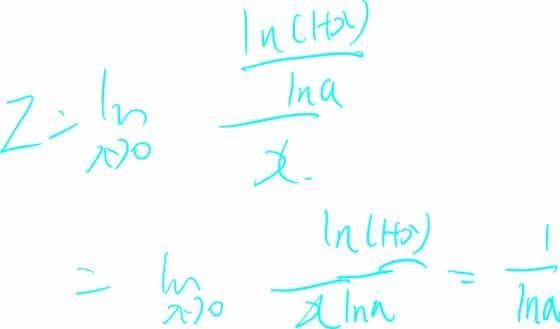 Z = lim_{x→0} \frac{\frac{ln(1+x)}{ln a}}{x}
= lim_{x→0} \frac{ln(1+x)}{x ln a} = \frac{1}{ln a}